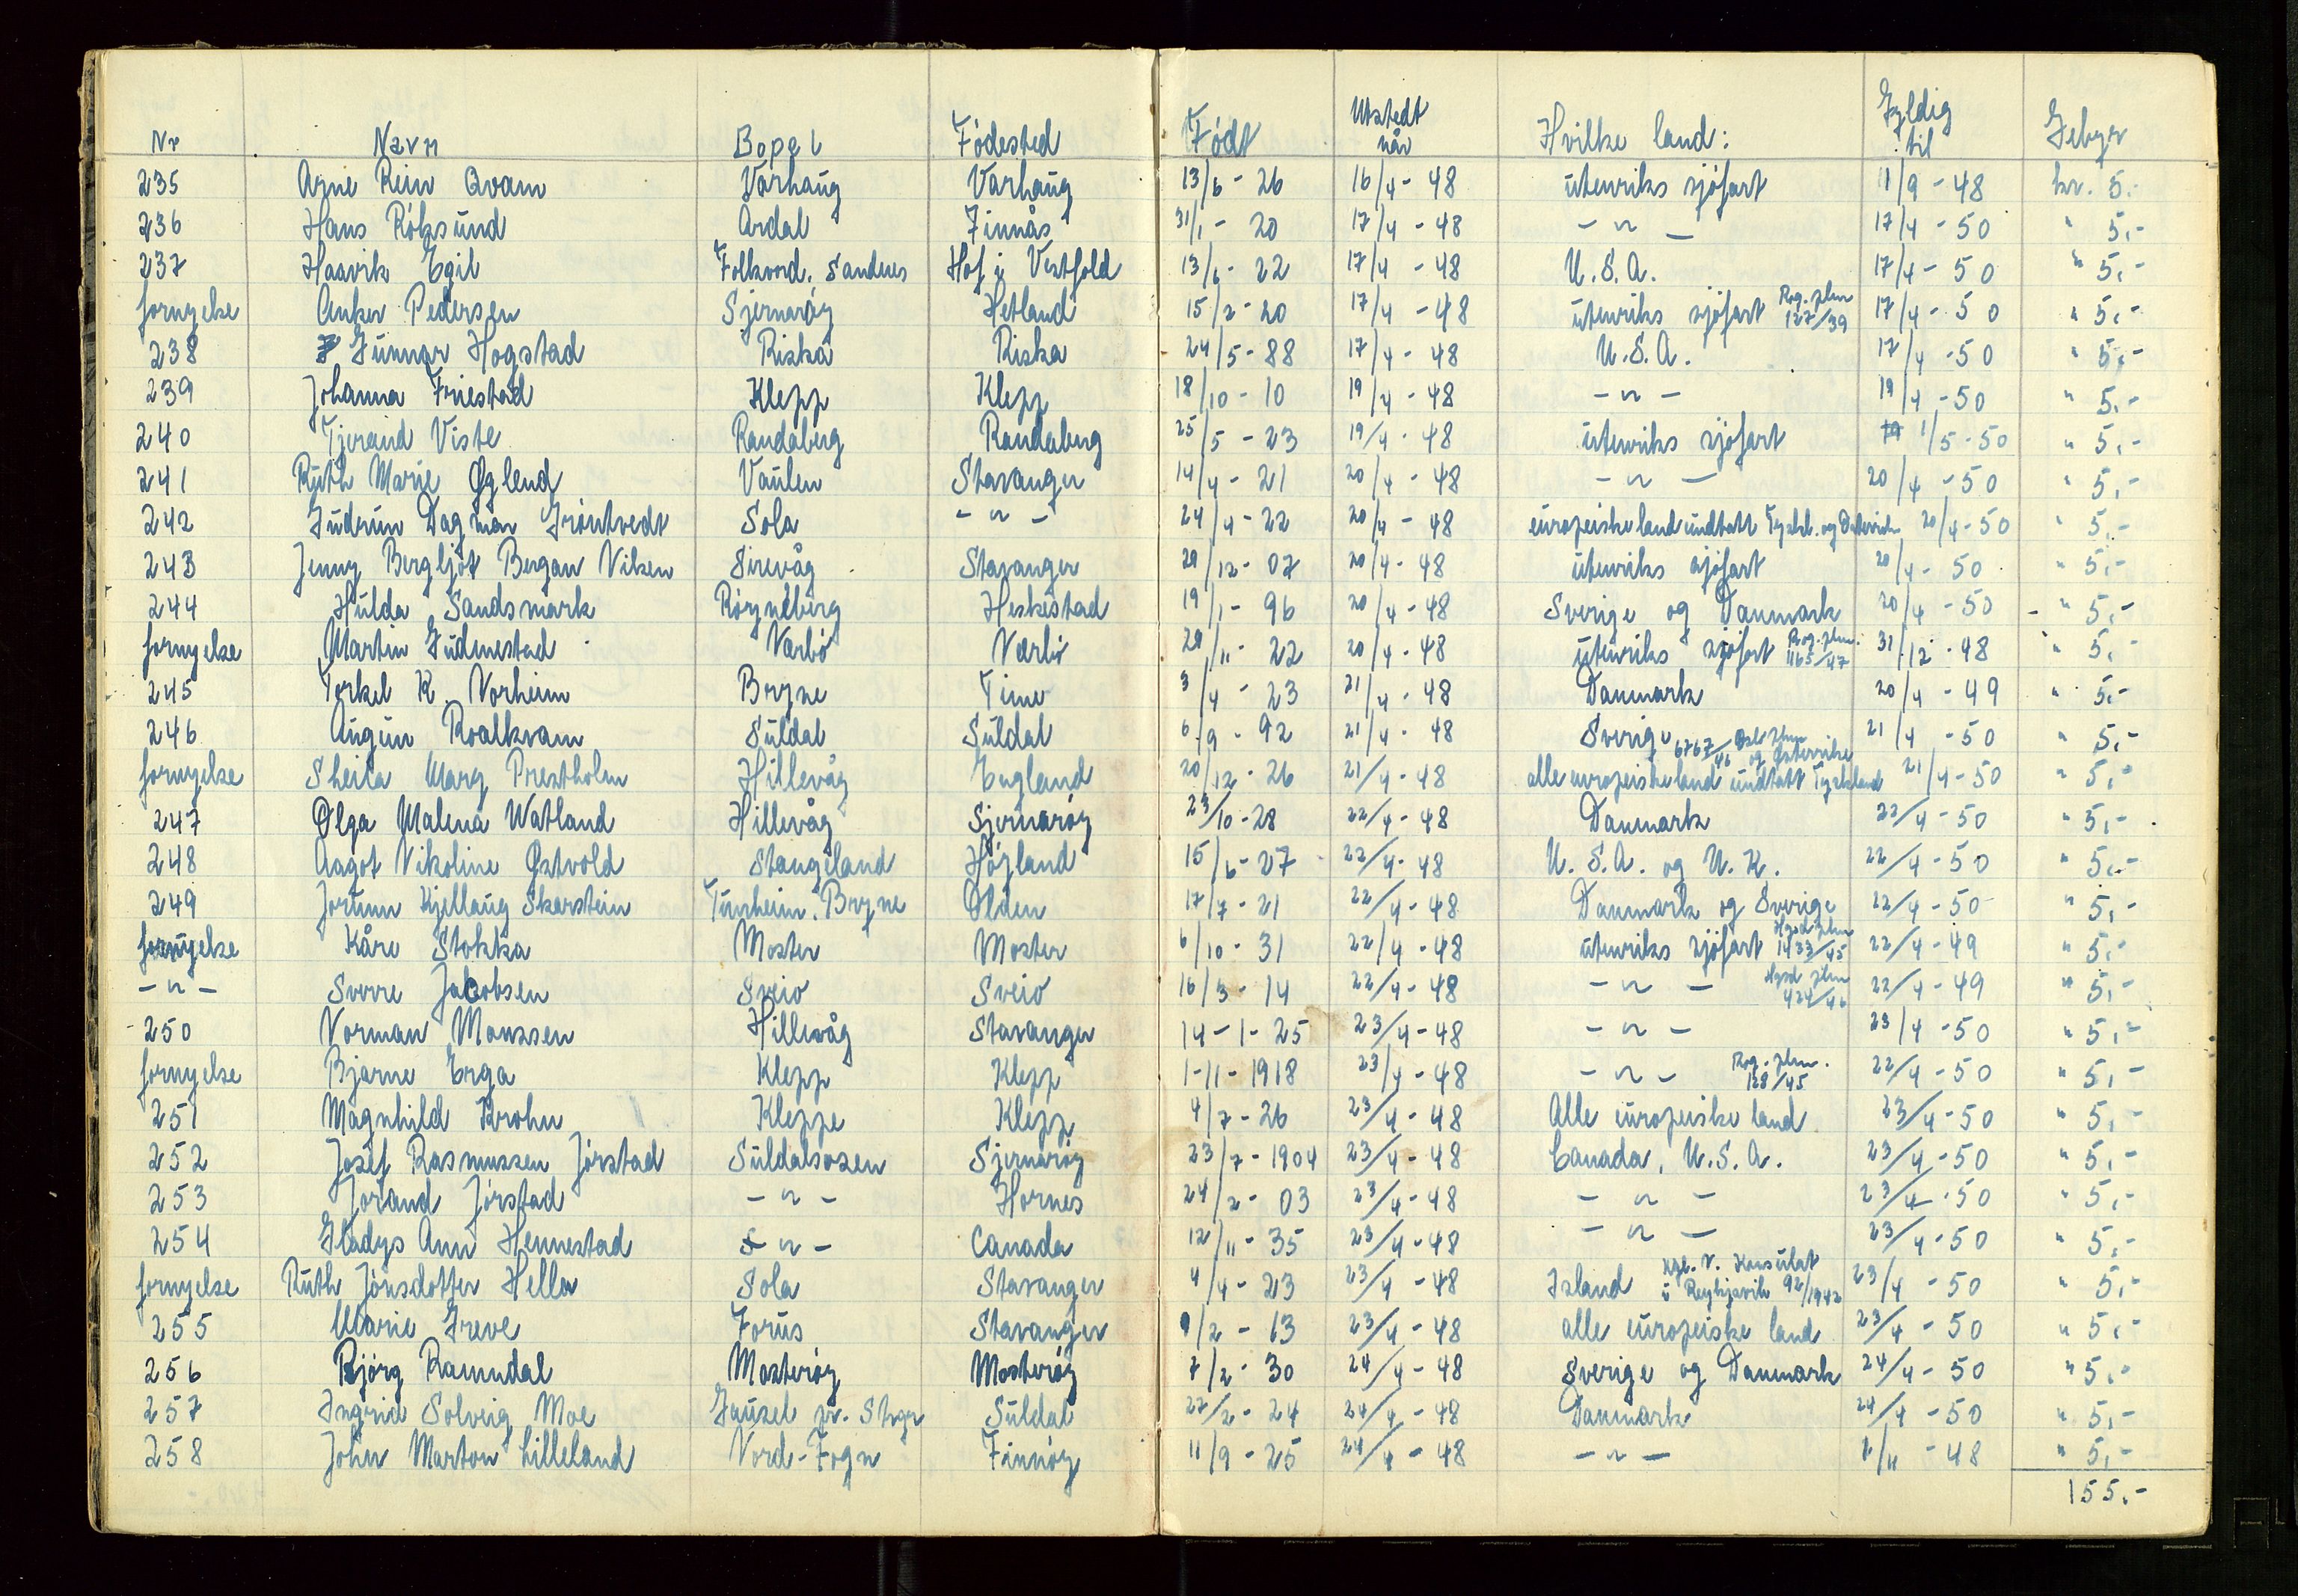 Nr Navn Bopel Fødested Født Utstedt når Hvilke land: Gyldig til Gebyr
235 Arne Rein Qvam Varhaug Varhaug 13/6 - 26 16/4 - 48 utenriks sjøfart 11/9 - 48 kr. 5.-
236 Hans Röksund Årdal Finnås 31/1 - 20 17/4 - 48 - " - 17/4 - 50 " 5,-
237 Haavik Egil Folkvord. Sandnes Hof i Vestfold 13/6 - 22 17/4 - 48 U.S.A. 17/4 - 50 " 5,-
fornyelse Anker Pedersen Sjernarøy Hetland 15/2 - 20 17/4 - 48 utenriks sjøfart Rog. plm 127/39 17/4 - 50 " 5,-
238 Gunnar Hogstad Riska Riska 24/5 - 88 17/4 - 48 U.S.A. 17/4 - 50 " 5,-
239 Johanna Friestad Klepp Klepp 18/10 - 10 19/4 - 48 - " - 19/4 - 50 " 5,-
240 Tjerand Viste Randaberg Randaberg 25/5 - 23 19/4 - 48 utenriks sjøfart 1/5 - 50 " 5,-
241 Ruth Marie Øglend Vaulen Stavanger 14/4 - 21 20/4 - 48 - " - 20/4 - 50 " 5,-
242 Gudrun Dagmar Gröntvedt Sola - " - 24/4 - 22 20/4 - 48 europeiske land undtatt Tyskl. og Østerrike 20/4 - 50 " 5,-
243 Jenny Bergljot Bergan Nilsen Sirevåg Stavanger 29/12 - 07 20/4 - 48 utenriks sjøfart 20/4 - 50 " 5,-
244 Hulda Sandsmark Röyneberg Heskestad 19/1 - 96 20/4 - 48 Sverige og Danmark 20/4 - 50 " 5,-
fornyelse Martin Gudmestad Nærbö Nærbö 29/11 - 22 20/4 - 48 utenriks sjøfart Rog. plm. 1165/47 31/12 - 48 " 5,-
245 Torkel K. Norheim Bryne Time 3/4 - 23 21/4 - 48 Danmark 20/4 - 49 " 5,-
246 Augun Roalkvam Suldal Suldal 6/9 - 92 21/4 - 48 Sverige 21/4 - 50 " 5,-
fornyelse Sheila Marg Prestholm Hillevåg England 20/12 - 26 21/4 - 48 alle europeiske land undtatt Tyskland og Østerrike 6767/46 Oslo plm 21/4 - 50 " 5,-
247 Olga Malena Watland Hillevåg Sjernarøy 23/10 - 28 22/4 - 48 Danmark 22/4 - 50 " 5,-
248 Aagot Nikoline Østvold Stangeland Höyland 15/6 - 27 22/4 - 48 U.S.A. og U.K. 22/4 - 50 " 5,-
249 Jorunn Kjellaug Skarstein Tunheim. Bryne Olden 17/7 - 21 22/4 - 48 Danmark og Sverige 22/4 - 50 " 5,-
fornyelse Kåre Stokka Moster Moster 6/10 - 31 22/4 - 48 utenriks sjøfart Hgsd plm 1433/45 22/4 - 49 " 5,-
- " - Sverre Jacobsen Sveio Sveio 16/3 - 14 22/4 - 48 - " - Hgsd plm 424/46 22/4 - 49 " 5,-
250 Norman Monssen Hillevåg Stavanger 14 - 1 - 25 23/4 - 48 - " - 23/4 - 50 " 5,-
fornyelse Bjarne Erga Klepp Klepp 1 - 11 - 1918 23/4 - 48 - " - Rog. plm. 128/45 22/4 - 50 " 5,-
251 Magnhild Krohn Kleppe Klepp 4/7 - 26 23/4 - 48 Alle europeiske land 23/4 - 50 " 5,-
252 Josef Rasmussen Jörstad Suldalsosen Sjernarøy 23/7 - 1904 23/4 - 48 Canada, U.S.A. 23/4 - 50 " 5,-
253 Jorand Jörstad - " - Hornes 24/2 - 03 23/4 - 48 - " - 23/4 - 50 " 5,-
254 Gladys Ann Hennestad - " - Canada 12/11 - 35 23/4 - 48 - " - 23/4 - 50 " 5,-
fornyelse Ruth Jónsdotter Hella Sola Stavanger 4/4 - 23 23/4 - 48 Island Kgl. N. Konsulat i Reykjavik 92/1942 23/4 - 50 " 5,-
255 Marie Greve Forus Stavanger 9/2 - 13 23/4 - 48 alle europeiske land 23/4 - 50 " 5,-
256 Bjørg Ramndal Mosterøy Mosterøy 7/2 - 30 24/4 - 48 Sverige og Danmark 24/4 - 50 " 5,-
257 Ingrid Solveig Moe Gausel pr. Stvgr Suldal 22/2 - 24 24/4 - 48 Danmark 24/4 - 50 " 5,-
258 John Marton Lilleland Nord-Fogn Finnöy 11/9 - 25 24/4 - 48 - " - 1/11 - 48 " 5,-
155.-